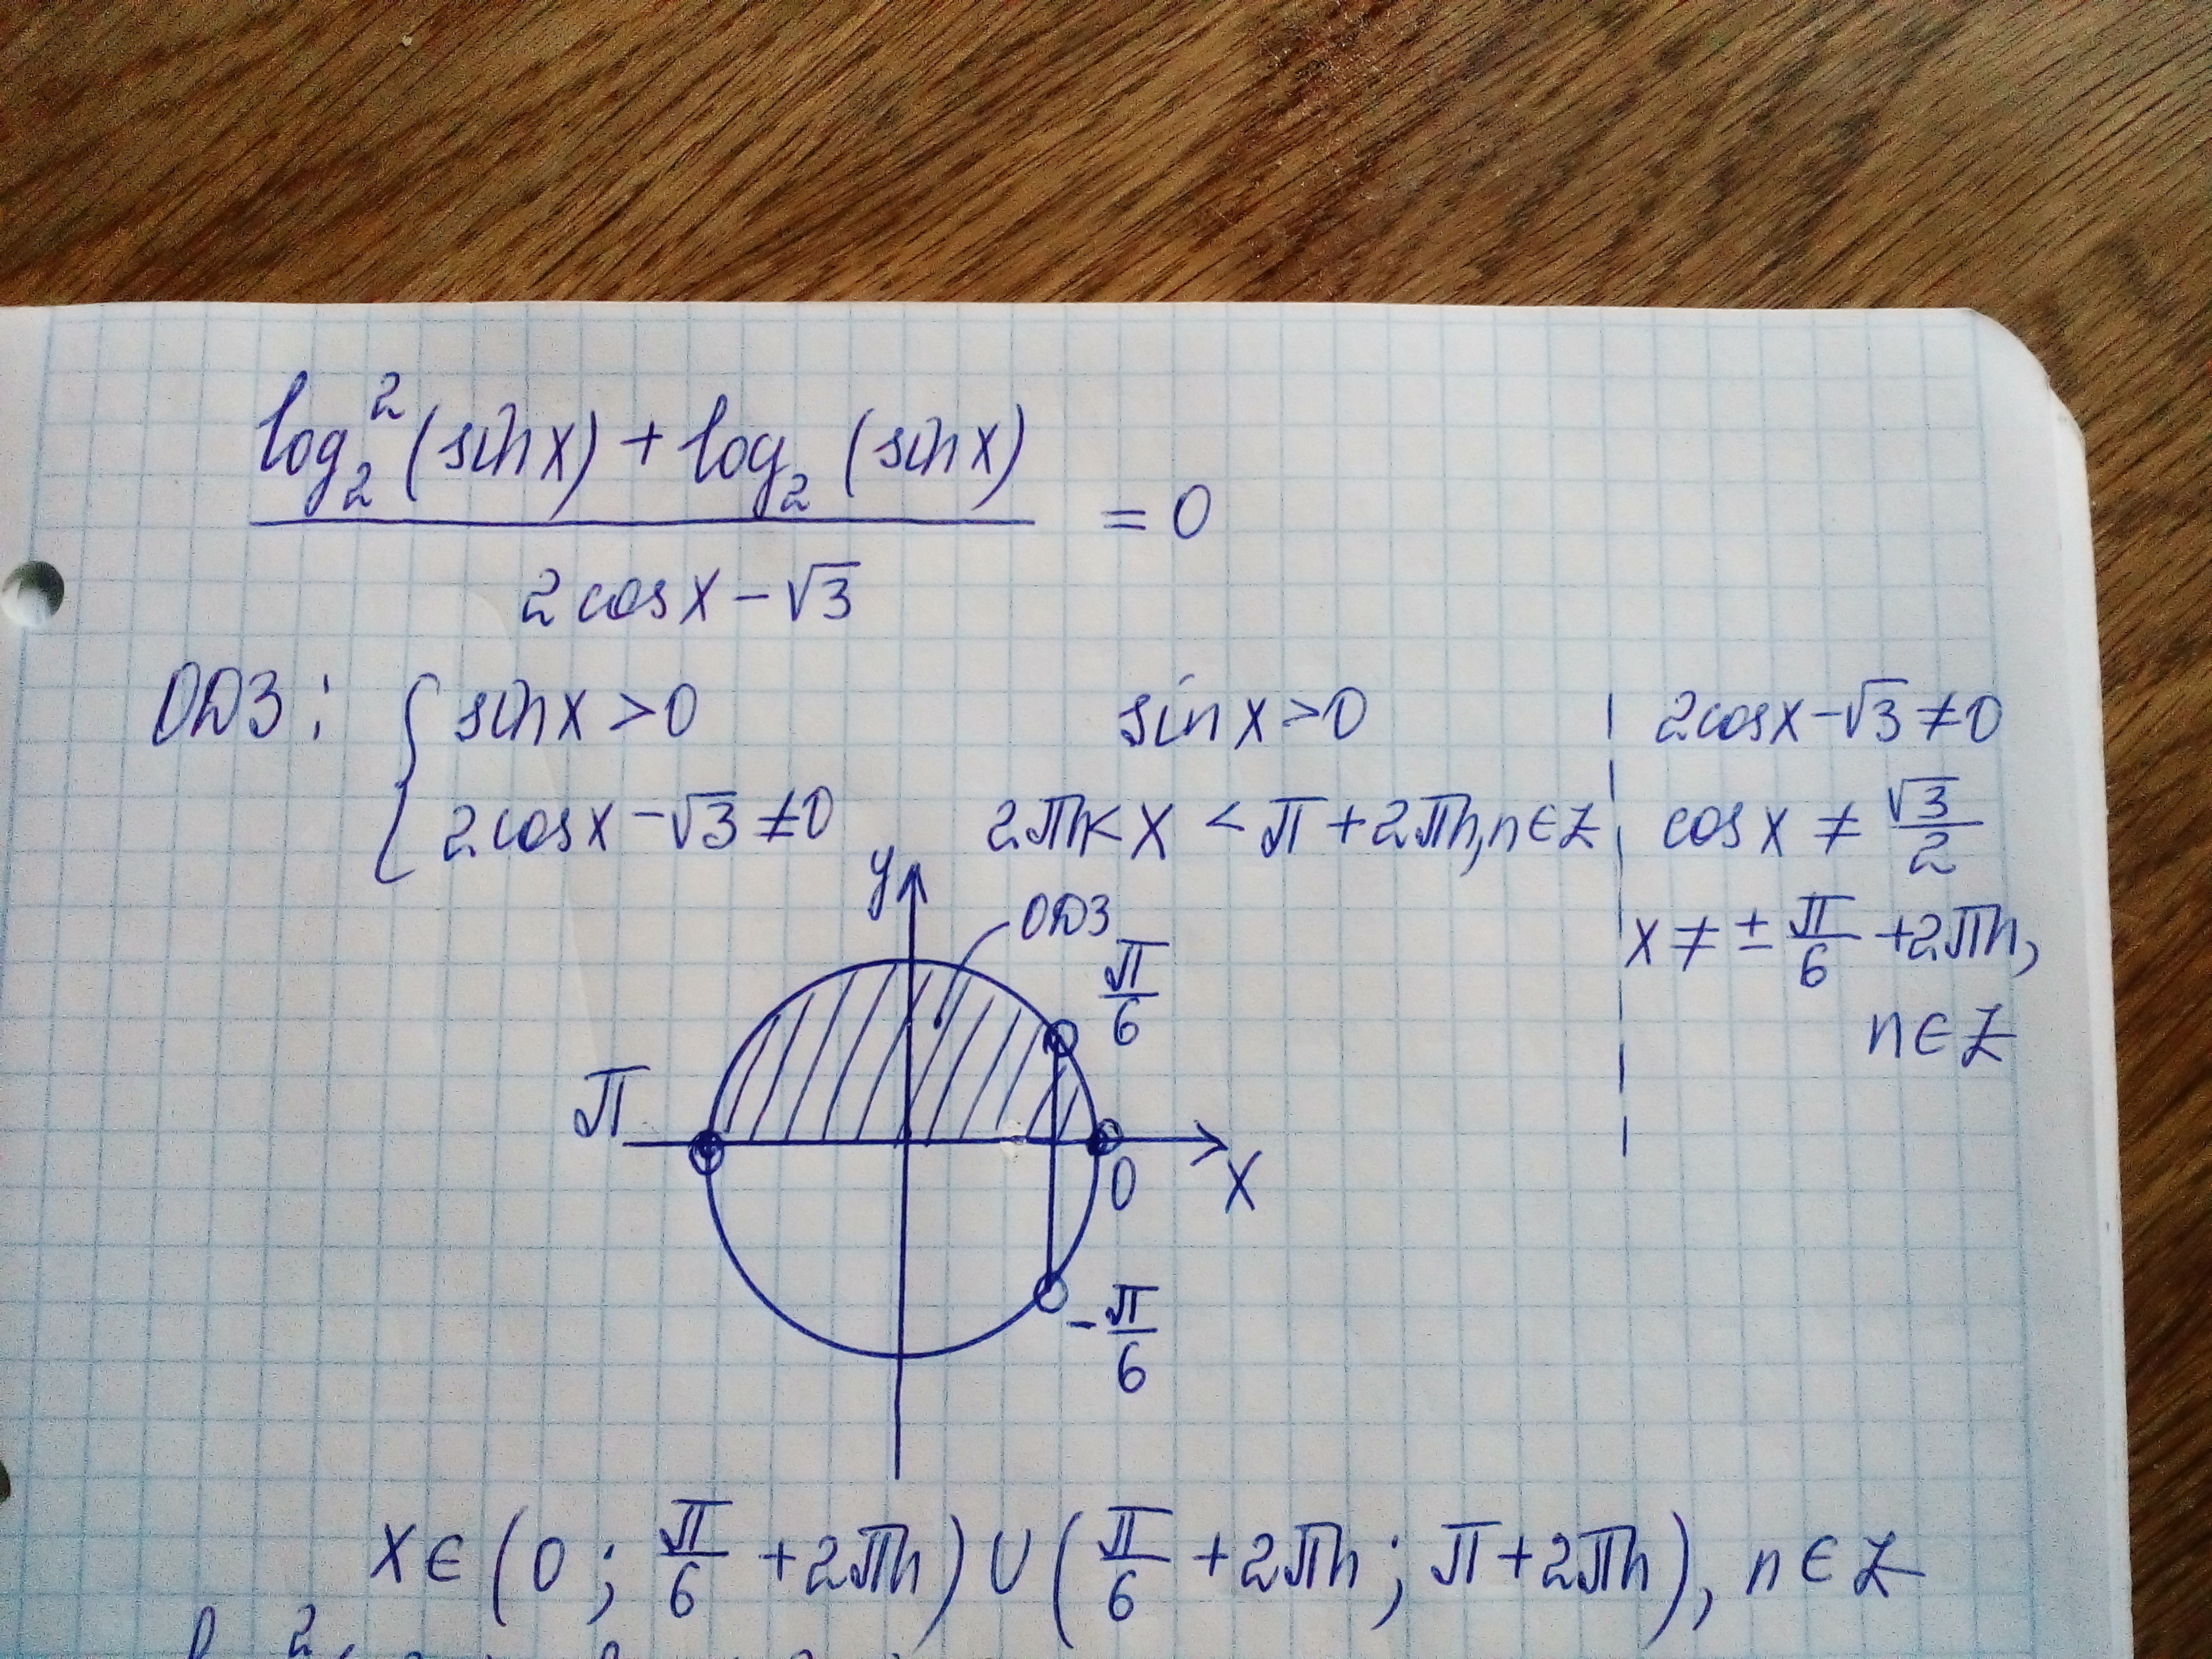 log₂²(sinx) + log₂(sinx)
= 0
2cosx - √3
ОДЗ: { sinx > 0
2cosx - √3 ≠ 0
sinx > 0
2πn < x < π + 2πn, n ∈ Z
2cosx - √3 ≠ 0
cosx ≠ √3/2
x ≠ ± π/6 + 2πn,
n ∈ Z
y
ОДЗ
π/6
π
0
x
-π/6
x ∈ (0; π/6 + 2πn) ∪ (π/6 + 2πn; π + 2πn), n ∈ Z